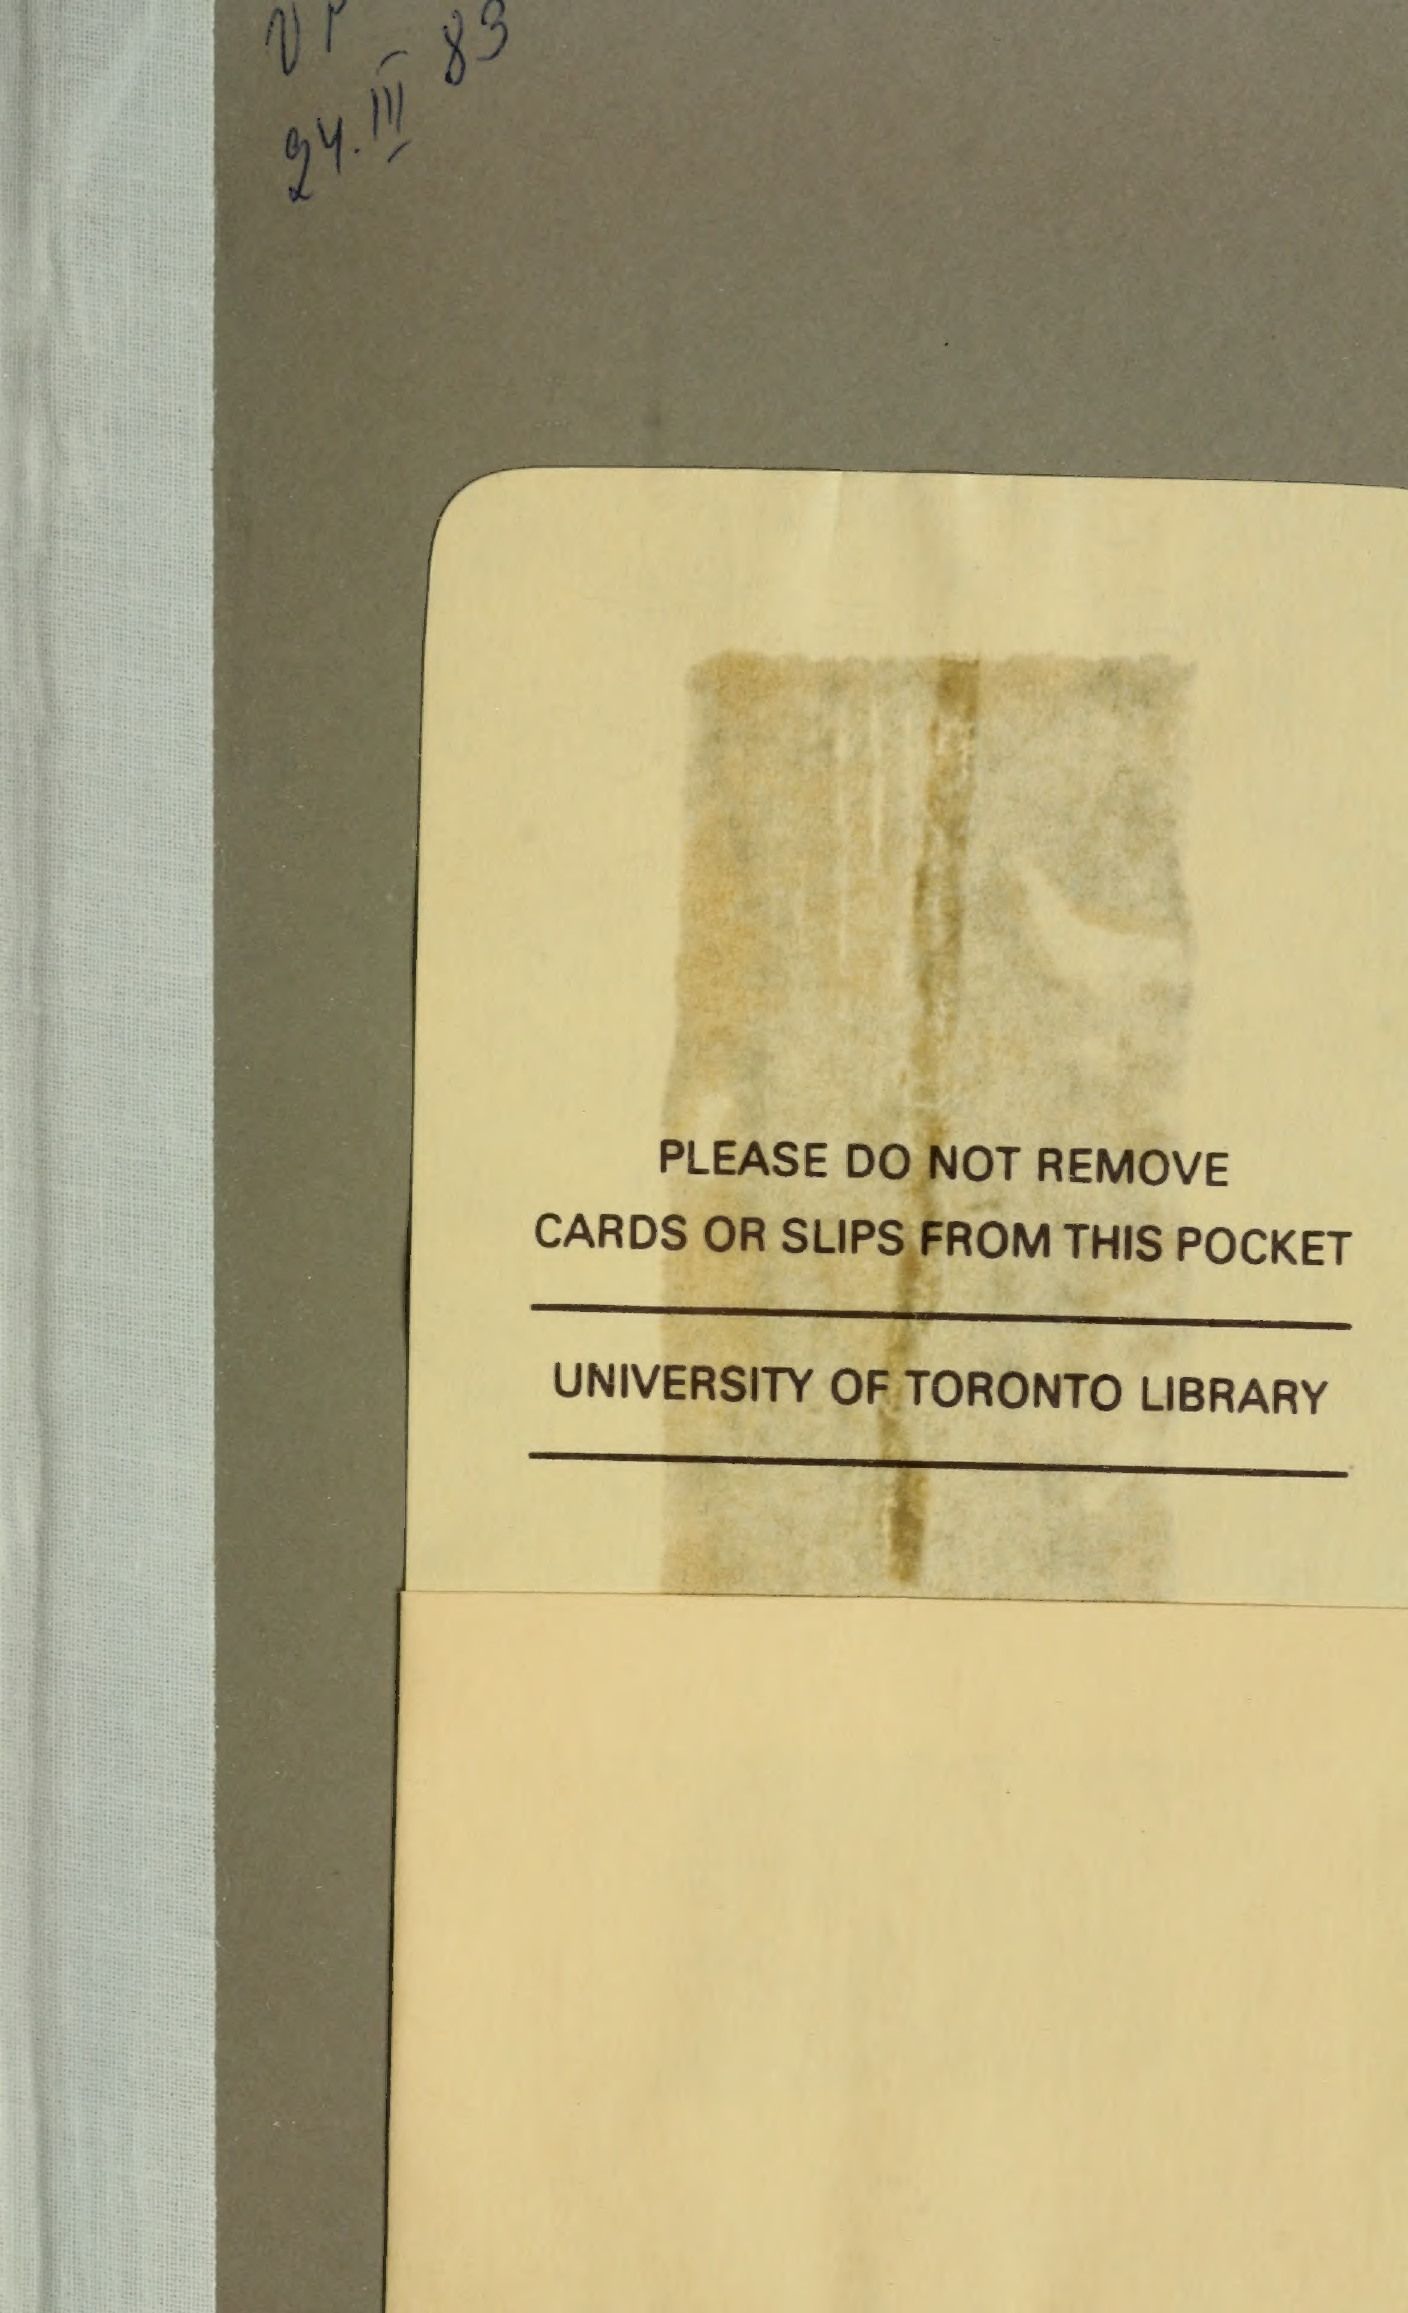 24.III 83
PLEASE DO NOT REMOVE
CARDS OR SLIPS FROM THIS POCKET
UNIVERSITY OF TORONTO LIBRARY